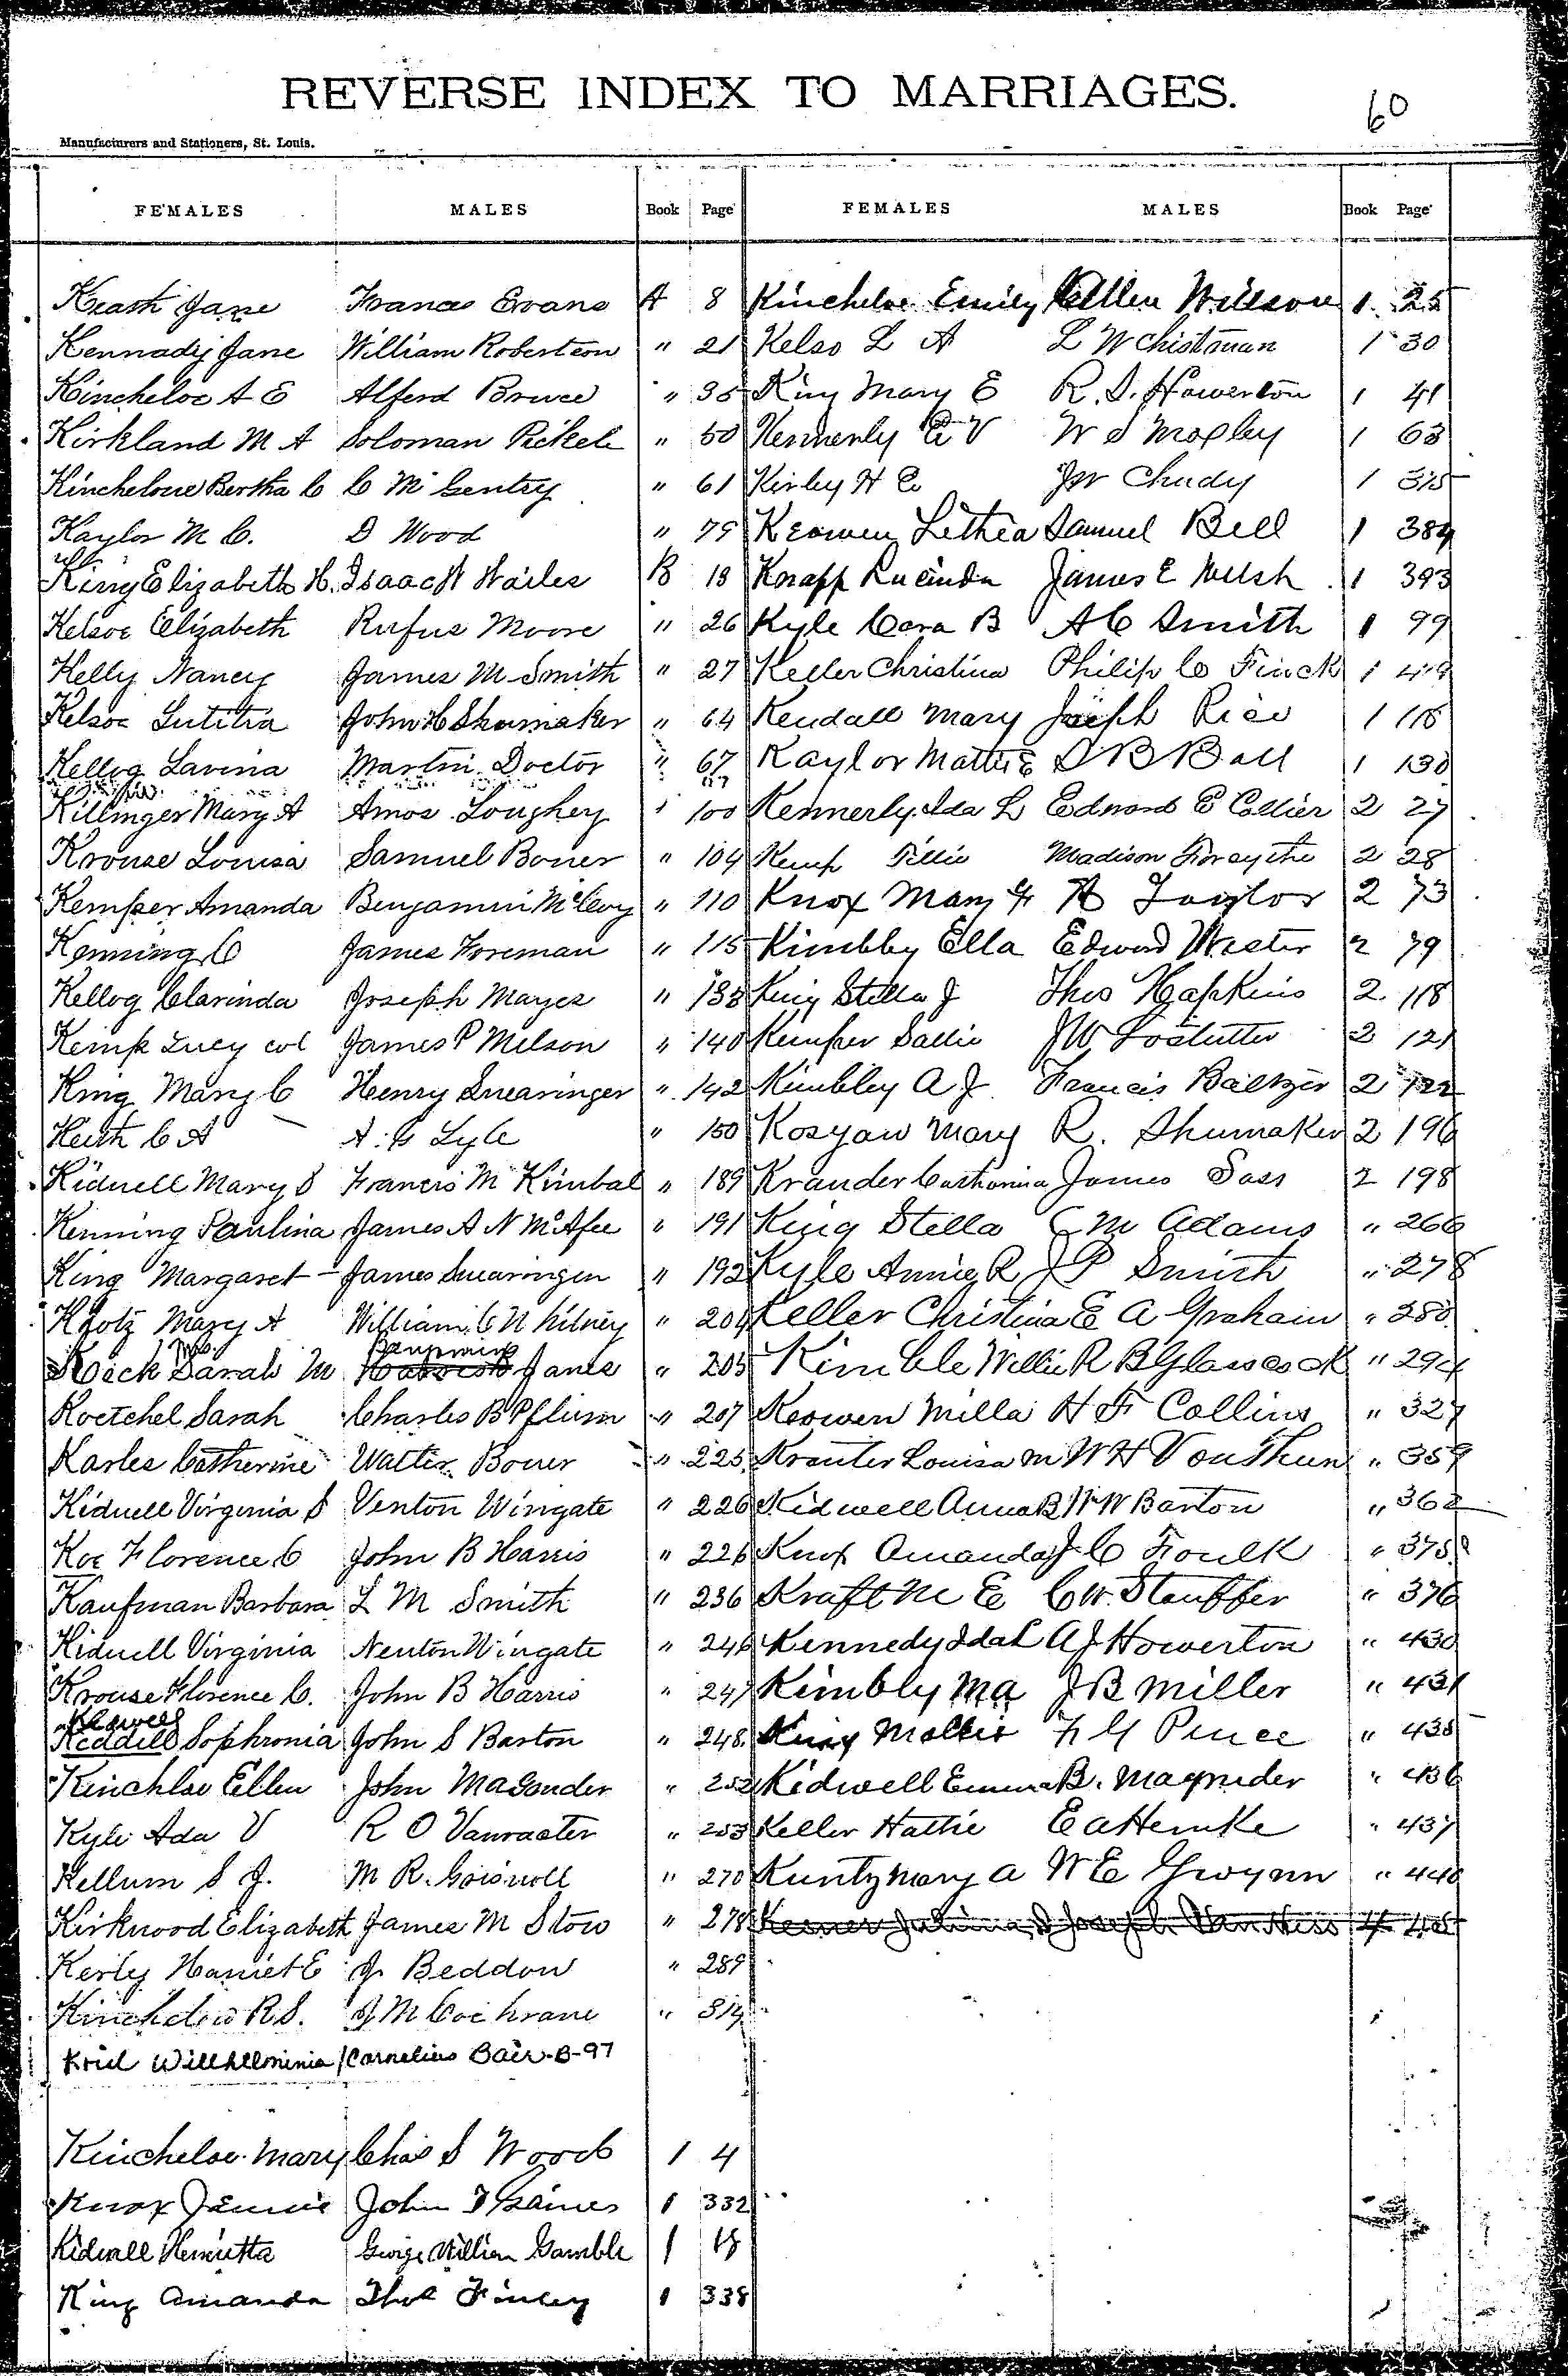 REVERSE INDEX TO MARRIAGES.
60
Manufacturers and Stationers, St. Louis.
FEMALES MALES Book Page FEMALES MALES Book Page
Keath Jane Frances Evans A 8
Kennady Jane William Robertson " 21
Kincheloe A E Alferd Bruce " 35
Kirkland M A Soloman Pickele " 50
Kincheloue Bertha C C M Gentry " 61
Kaylor M C. D Wood " 79
King Elizabeth H. Isaac W Wailes B 18
Kelsoe Elizabeth Rufus Moore " 26
Kelly Nancy James M Smith " 27
Kelsoe Lutitia John H Shumaker " 64
Kellog Lavina Martin Doctor " 67
Killinger Mary A Amos Loughey " 100
Krouse Louisa Samuel Boner " 104
Kemper Amanda Benjamin McElvoy " 110
Kenning C James Foreman " 115
Kellog Clarinda Joseph Mayes " 133
Kemp Lucy col James P Melson " 140
King Mary C Henry Swearinger " 142
Keith C A A. G Lyle " 150
Kidwell Mary S Francis M Kimbal " 189
Kenning Paulina James A N McAfee " 191
King Margaret James Swearingen " 192
Klotz Mary A William C N Kilney " 204
Sarah M Benjamin Janes " 205
Koetchel Sarah Charles B Pflum " 207
Karles Catherine Walter Boner " 225
Kidwell Virginia S Venton Wingate " 226
Koe Florence C John B Harris " 226
Kaufman Barbara L M Smith " 236
Kidwell Virginia Newton Wingate " 246
Krouse Florence C. John B Harris " 247
Kidwell
Keddill Sophronia John S Barton " 248
Kinchloe Ellen John Magonder " 252
Kyle Ada V R O Vanracter " 253
Kellum S J. M R. Grisnoll " 270
Kirkwood Elizabeth James M Stow " 278
Kerly Harriet E J Beddow " 289
Kincheloe R S. J M Cochrane " 314
Kriel Willhelminia / Cornelius Bair-B-97
Kincheloe Mary Chas S Woods 1 4
Knox Jennie John T Gaines 1 332
Kidwell Henrietta George William Gamble 1 18
King Amanda Thos Finley 1 338
Kincheloe Emily Allen Willson 1 25
Kelso L A L W Chistman 1 30
King Mary E R. S. Howerton 1 41
Kennerly A V W S Mopley 1 63
Kirley H E JW Chudy 1 315
Keowen Lithea Samuel Bell 1 384
Knapp Lucinda James E Welsh 1 393
Kyle Cora B A C Smith 1 99
Keller Christina Philip C Finck 1 419
Kendall Mary Joseph Rice 1 118
Kaylor Mattie E D B Ball 1 130
Kennerly Ida L Edward E Collier 2 27
Kemp Tillie Madison Forsythe 2 28
Knox Mary F A Taylor 2 73
Kimbby Ella Edward Wester 2 79
King Stella J Thos Hapkins 2 118
Kemper Sallie JW Lostutter 2 121
Kimbley A J Francis Baltzer 2 122
Kosyaw Mary R. Shumaker 2 196
Krander Catharina James Sass 2 198
King Stella C M Adams " 266
Kyle Annie R J P Smith " 278
Keller Christina E A Graham " 280
Kimble Willie R B Glasscock " 294
Keowen Milla H F Collins " 327
Krauter Louisa M W H VonThun " 359
Kidwell Anna B W W Barton " 362
Knox Amanda J C Foulk " 375
Kraft M E C W. Stauffer " 376
Kennedy Ida L A J Howerton " 430
Kimbly Ma J B Miller " 431
King Mollie F G Pence " 435
Kidwell Emma B. Magruder " 436
Keller Hattie E A Hemke " 437
Kuntz Mary A W E Gwynn " 440